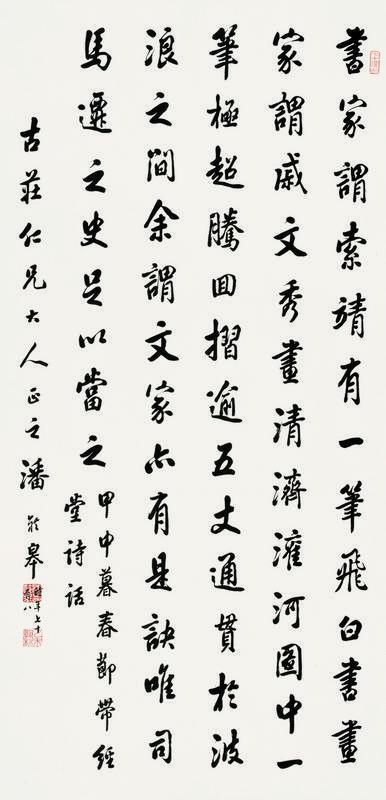 書家謂索靖有一筆飛白書畫
家謂戚文秀畫清濟灌河圖中一
筆極超騰回摺逾五丈通貫於波
浪之間余謂文家亦有是訣唯司
馬遷之史足以當之
甲申暮春節帶經
堂詩話
古莊仁兄大人正之潘齡皋
時年七十
有八